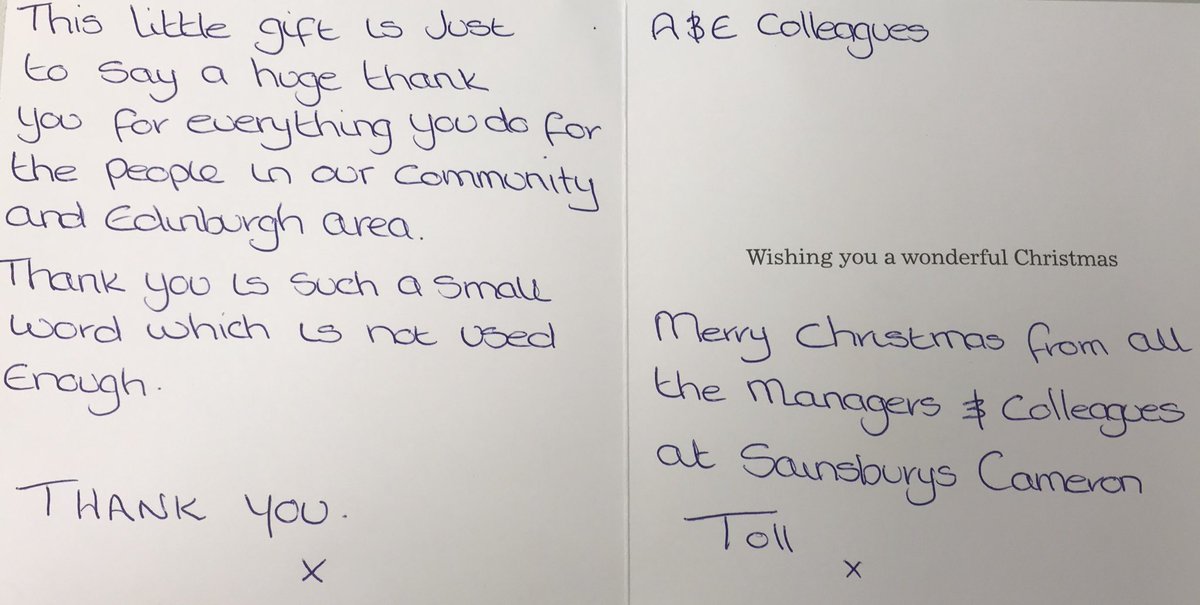 This little gift is Just
to say a huge thank
you for everything you do for
the people in our community
and Edinburgh area.
Thank you is such a small
word which is not used
Enough.
THANK YOU.
x
A&E Colleagues
Wishing you a wonderful Christmas
Merry Christmas from all
the Managers & Colleagues
at Sainsburys Cameron
Toll
x